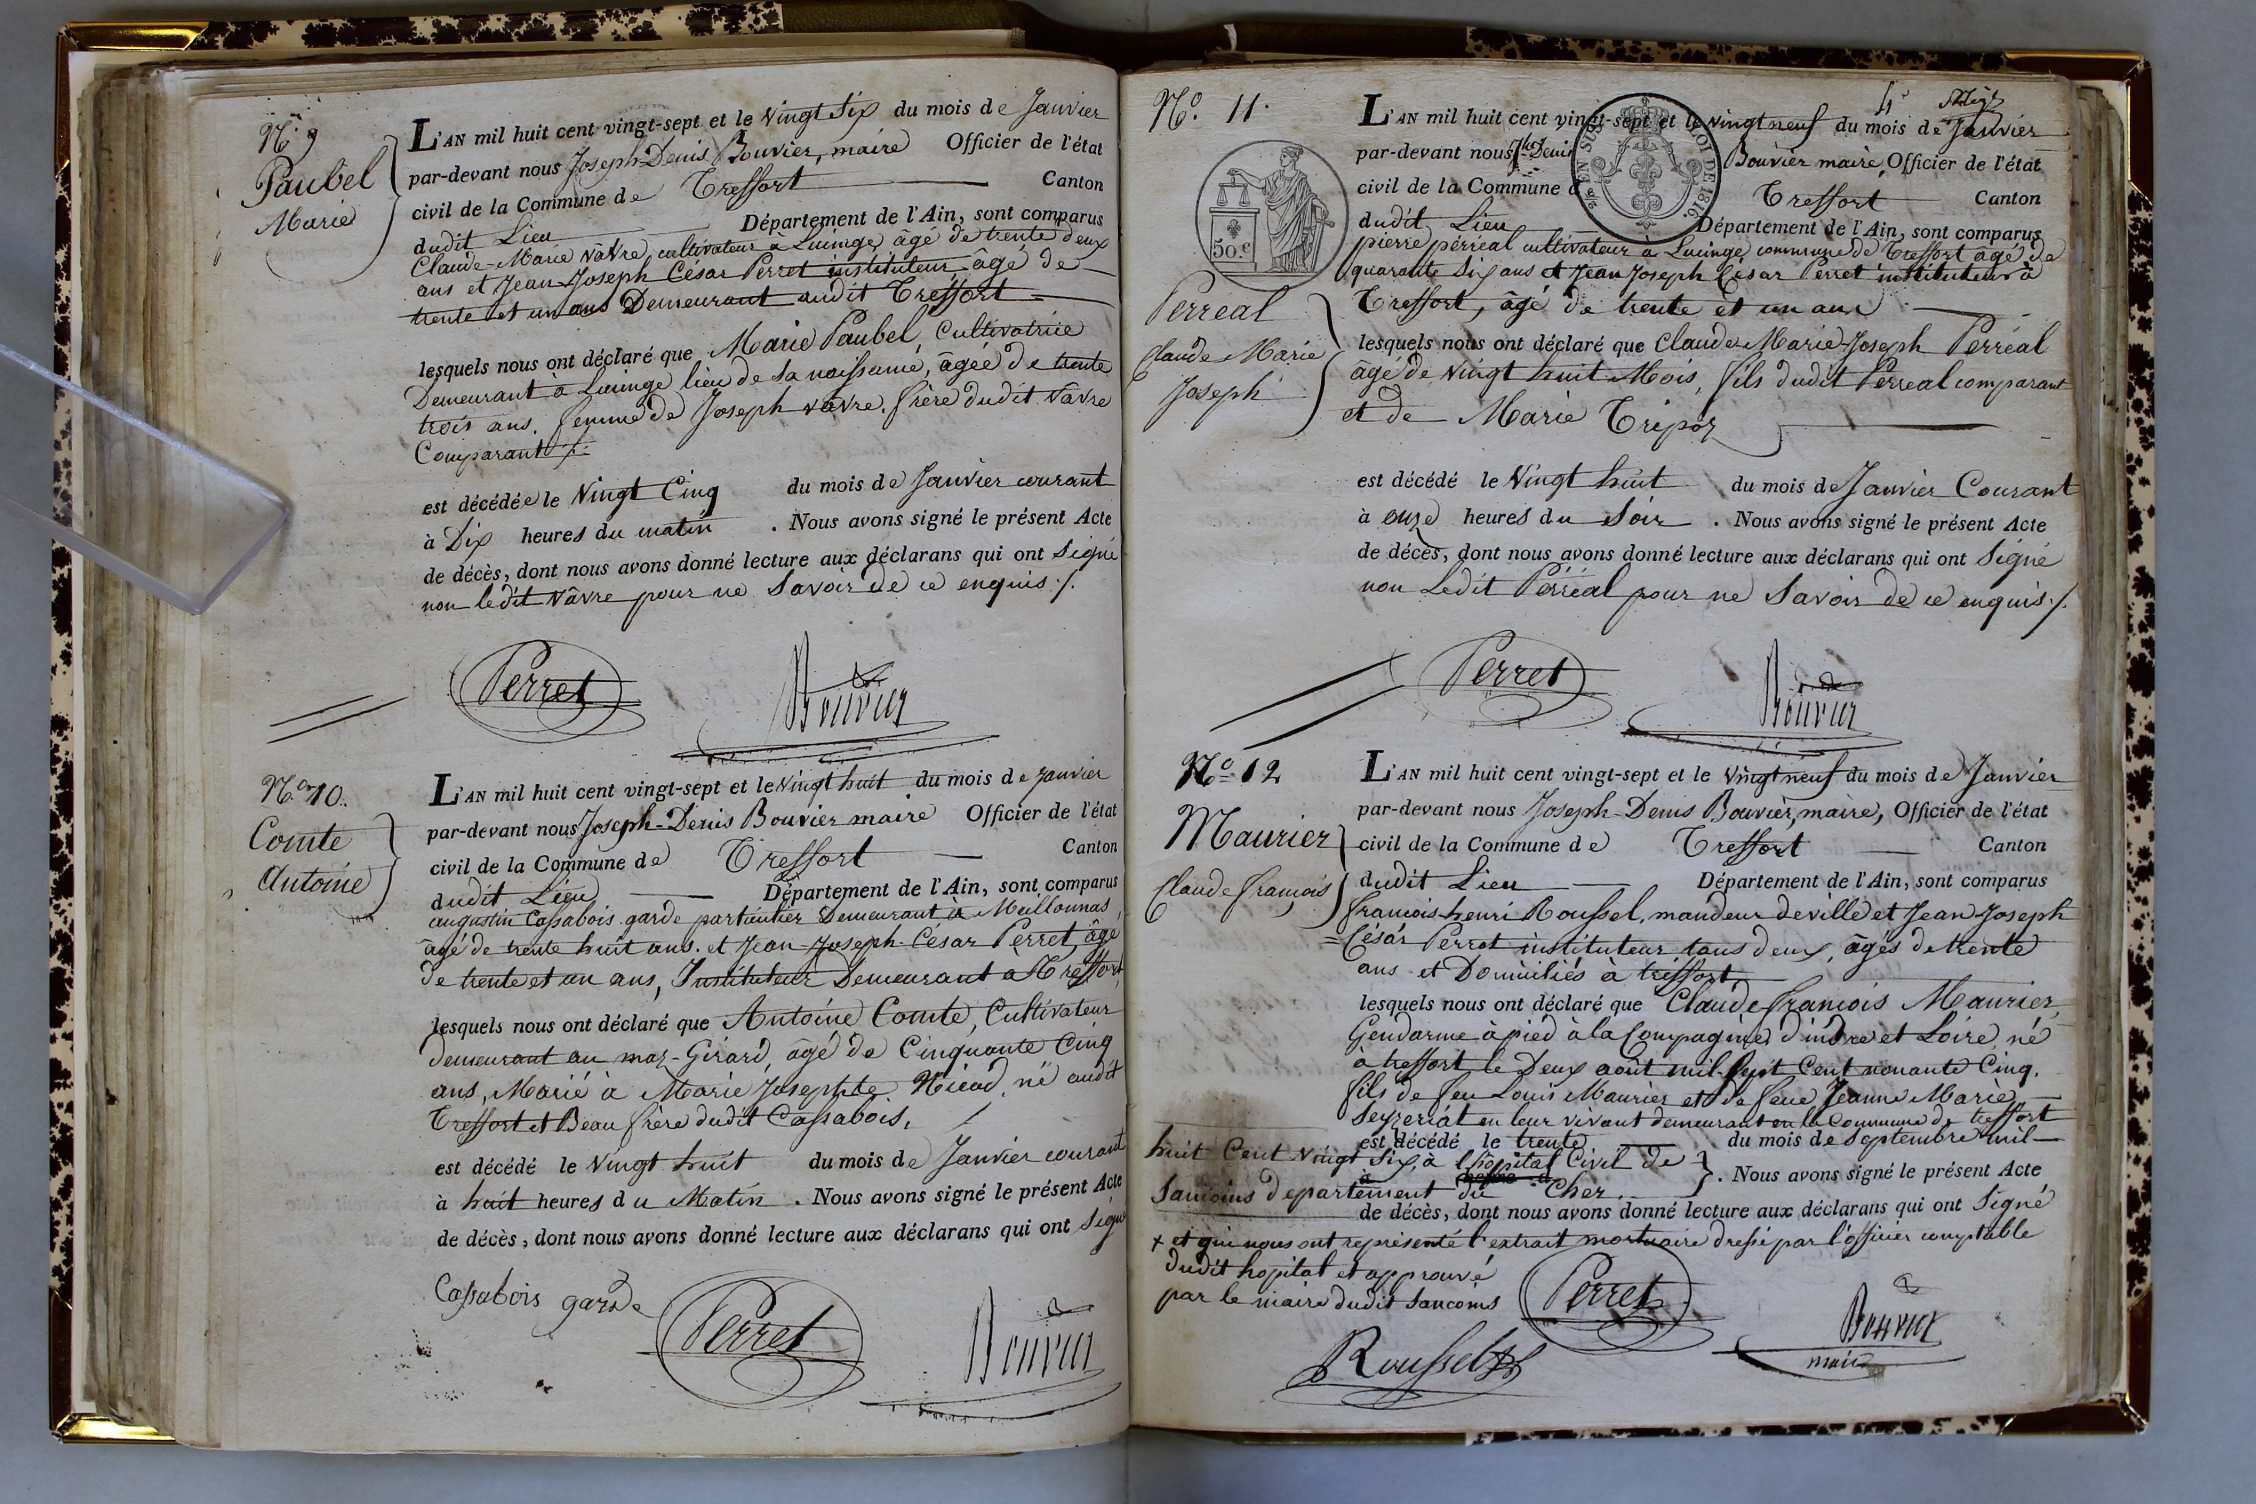 N.º 9
Paubel
Marie
L'AN mil huit cent vingt-sept et le vingt six du mois de Janvier
par-devant nous Joseph-Denis Bouvier, maire Officier de l'état
civil de la Commune de Treffort Canton
dudit Lieu Département de l'Ain, sont comparus
Claude-Marie vâvre cultivateur a Lucinge, âgé de trente deux
ans et Jean-Joseph César Perret instituteur agé de
trente et un ans Demeurant audit Treffort
lesquels nous ont déclaré que Marie Paubel, Cultivatrice
Demeurant à Lucinge lieu de sa naissance, âgée de trente
trois ans. femme de Joseph vâvre. frère dudit vâvre
Comparant ./.
est décédée le vingt Cinq du mois de Janvier courant
à Dix heures du matin . Nous avons signé le présent Acte
de décès, dont nous avons donné lecture aux déclarans qui ont signé
non ledit vâvre pour ne savoir de ce enquis ./.
Perret
Bouvier
N.º 10.
Comte
Antoine
L'AN mil huit cent vingt-sept et le vingt huit du mois de janvier
par-devant nous Joseph-Denis Bouvier maire Officier de l'état
civil de la Commune de Treffort Canton
dudit Lieu Département de l'Ain, sont comparus
augustin Cassabois garde particulier Demeurant à Meillonnas,
âgé de trente huit ans. et Jean-Joseph-César Perret, âgé
de trente et un ans, Instituteur Demeurant à Treffort,
lesquels nous ont déclaré que Antoine Comte, Cultivateur
demeurant au maz-Girard, âgé de Cinquante Cinq
ans, Marié à Marie Josephte né audit
Treffort et Beau frère dudit Cassabois,
est décédé le vingt huit du mois de Janvier courant
à huit heures du Matin . Nous avons signé le présent Acte
de décès, dont nous avons donné lecture aux déclarans qui ont signé
Cassabois garde
Perret
Bouvier
N.º 11.
50.c
Perreal
Claude Marie
Joseph
L'AN mil huit cent vingt-sept et le vingt neuf du mois de Janvier
par-devant nous Jh-Denis Bouvier maire, Officier de l'état
civil de la Commune d Treffort Canton
EN SUS LOI DE 1816.
dudit Lieu Département de l'Ain, sont comparus
pierre pérréal cultivateur à Lucinge, commune de Treffort âgé de
quarante six ans et Jean Joseph César Perret instituteur à
Treffort, âgé de trente et un ans
lesquels nous ont déclaré que Claude Marie-Joseph Perréal
âgé de vingt huit Mois, fils dudit Perreal comparant
et de Marie Tripoz
est décédé le vingt huit du mois de Janvier Courant
à onze heures du soir . Nous avons signé le présent Acte
de décès, dont nous avons donné lecture aux déclarans qui ont signé
non Ledit Perréal pour ne savoir de ce enquis ./.
Perret
Bouvier
N.º 12
Maurier
Claude François
L'AN mil huit cent vingt-sept et le vingt neuf du mois de Janvier
par-devant nous Joseph-Denis Bouvier, maire, Officier de l'état
civil de la Commune de Treffort Canton
dudit Lieu Département de l'Ain, sont comparus
françois-henri Roussel, mandeur deville et Jean-Joseph
César Perret instituteur tous deux, âgés de trente
ans et Domiciliés à treffort
lesquels nous ont déclaré que Claude françois Maurier,
Gendarme à pied à la Compagnie d'indre et Loire, né
à treffort le Deux août mil Sept Cent nonante Cinq.
fils de feu Louis Maurier et de feue Jeanne Marie
Seyzeriat en leur vivant demeurant en la Commune de treffort
est décédé le trente du mois de septembre mil
huit Cent vingt six à l'hôpital Civil de
. Nous avons signé le présent Acte
Sancoins departement du Cher.
de décès, dont nous avons donné lecture aux déclarans qui ont signé
+ et qui nous ont représenté l'extrait mortuaire dressé par l'officier comptable
dudit hopital et approuvé
par le maire dudit Sancoins
Perret
Bouvier
maire
Roussel